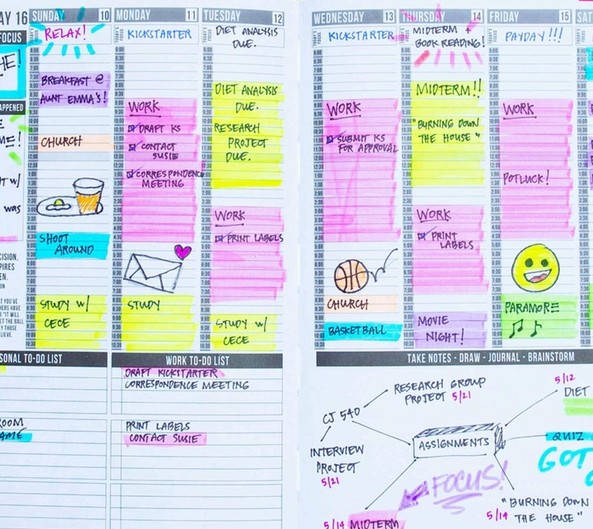 AY 16
SUNDAY 10
MONDAY 11
TUESDAY 12
FOCUS
RELAX!
KICKSTARTER
DIET ANALYSIS
DUE.
HE!
BREAKFAST @
AUNT EMMA'S!
APPENED
ME!
CHURCH
W/
WAS
SHOOT
AROUND
STUDY W/
CECE
WORK
DRAFT KS
CONTACT
SUSIE
CORRESPONDENCE
MEETING
STUDY
DIET ANALYSIS
DUE.
RESEARCH
PROJECT
DUE.
WORK
PRINT LABELS
STUDY W/
CECE
SONAL TO-DO LIST
WORK TO-DO LIST
ROOM
GAME
DRAFT KICKSTARTER
CORRESPONDENCE MEETING
PRINT LABELS
CONTACT SUSIE
WEDNESDAY 13
THURSDAY 14
FRIDAY 15
SAT
KICKSTARTER
MIDTERM +
BOOK READING!
PAYDAY!!!
WORK
SUBMIT KS
FOR APPROVAL
CHURCH
BASKETBALL
MIDTERM!!
"BURNING DOWN
THE HOUSE"
WORK
PRINT
LABELS
MOVIE
NIGHT!
WORK
POTLUCK!
PARAMORE
TAKE NOTES - DRAW - JOURNAL - BRAINSTORM
RESEARCH GROUP
PROJECT 5/21
CJ 540
INTERVIEW
PROJECT
5/21
ASSIGNMENTS
5/12
DIET
QUIZ
GOT
FOCUS!
5/14 MIDTERM
"BURNING DOWN
5/14 THE HOUSE"